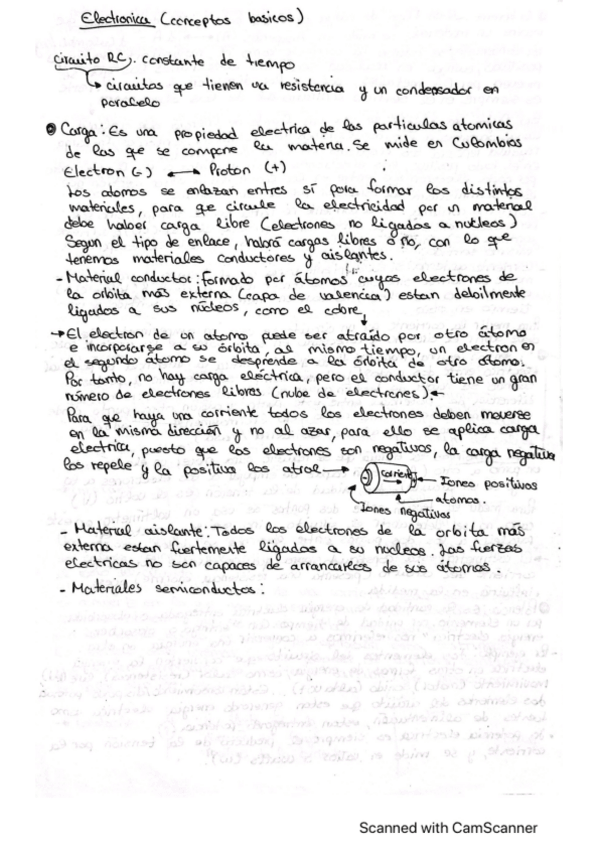 Electronica (conceptos basicos)
Circuito RC: constante de tiempo
circuitos que tienen una resistencia y un condensador en
paralelo
Carga: Es una propiedad electrica de las particulas atomicas
de las que se compone la materia. Se mide en Culombios
Electron (-) ←→ Proton (+)
Los atomos se enlazan entres sí para formar los distintos
materiales, para que circule la electricidad por un material
debe haber carga libre (electrones no ligados a nucleos)
Segun el tipo de enlace, habrá cargas libres o no, con lo que
tenemos materiales conductores y aislantes.
- Material conductor: formado por átomos cuyos electrones de
la orbita más externa (capa de valencia) estan debilmente
ligados a sus núcleos, como el cobre
→ El electron de un atomo puede ser atraído por otro átomo
e incorporarse a su órbita, al mismo tiempo, un electron en
el segundo átomo se desprende a la órbita de otro átomo.
Por tanto, no hay carga eléctrica, pero el conductor tiene un gran
número de electrones libres (nube de electrones).
Para que haya una corriente todos los electrones deben moverse
en la misma dirección y no al azar, para ello se aplica carga
electrica, puesto que los electrones son negativos, la carga negativa
los repele y la positiva los atrae →
corriente
Iones positivos
atomos.
Iones negativos
- Material aislante: Todos los electrones de la orbita más
externa estan fuertemente ligados a su nucleos. Las fuerzas
electricas no son capaces de arrancarlos de sus átomos.
- Materiales semiconductos:
Scanned with CamScanner